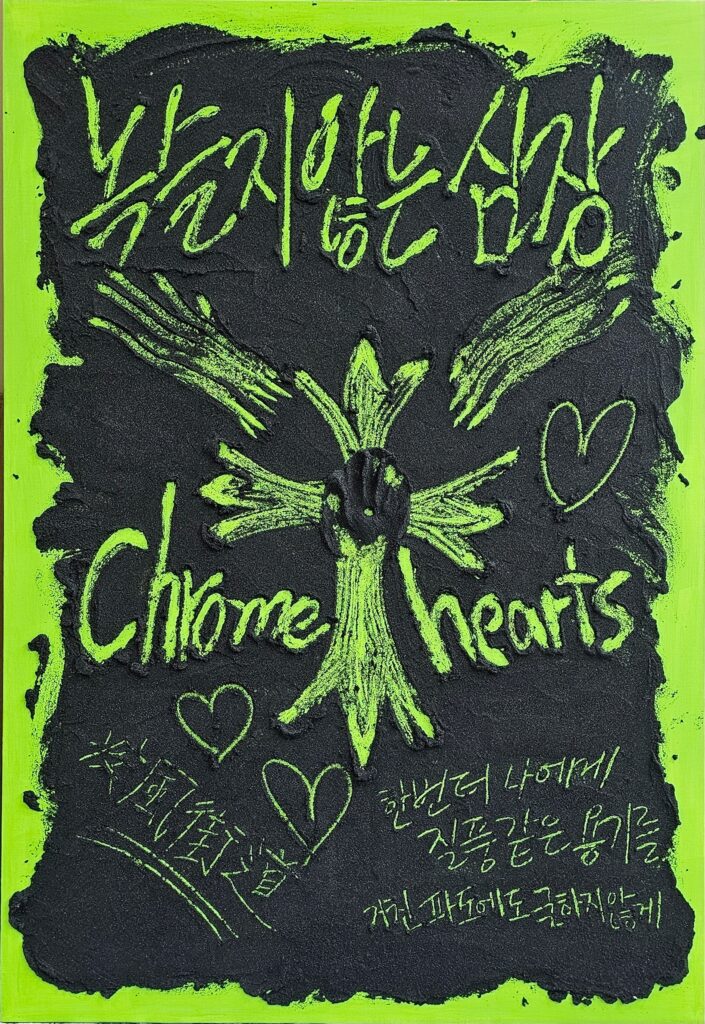 녹슬지않는 심장
Chrome hearts
疾風街道
한번더 나에게
질풍같은 용기를
거친 파도에도 굴하지않게